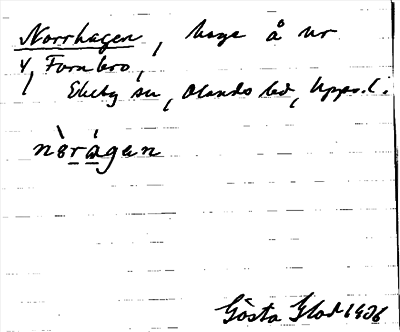 Norrhagen, hage å nr
4, Fornbro,
Ekeby sn, Olands hd, Upps. l.
nòrágan
Gösta Glad 1906